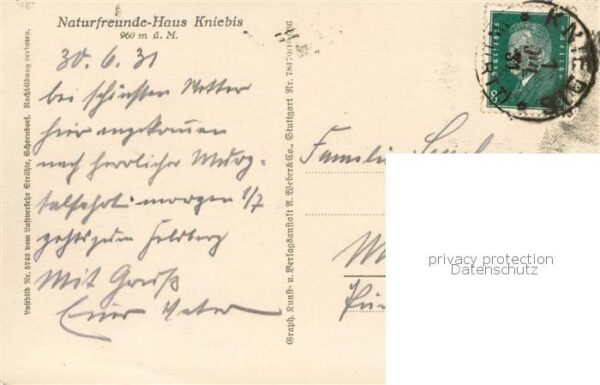 Naturfreunde-Haus Kniebis
960 m ü. M.
30. 6. 31
bei schönstem Wetter
hier angekommen
nach herrlicher Murg-
talfahrt. morgen 1/7
gehts zum Feldberg
Mit Gruß
Euer Vater
Luftbild Nr. 5748 vom Luftverkehr Strähle, Schorndorf. Nachbildung verboten.
Graph. Kunst- u. Verlagsanstalt A. Weber & Co., Stuttgart Nr.
Deutsches Reich
8
KNIEBIS
Familie
privacy protection
Datenschutz